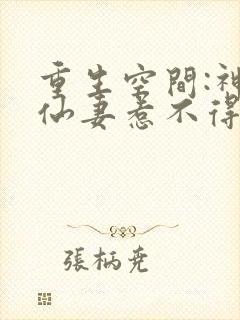 重生空間:神
仙妻惹不得
張柄堯